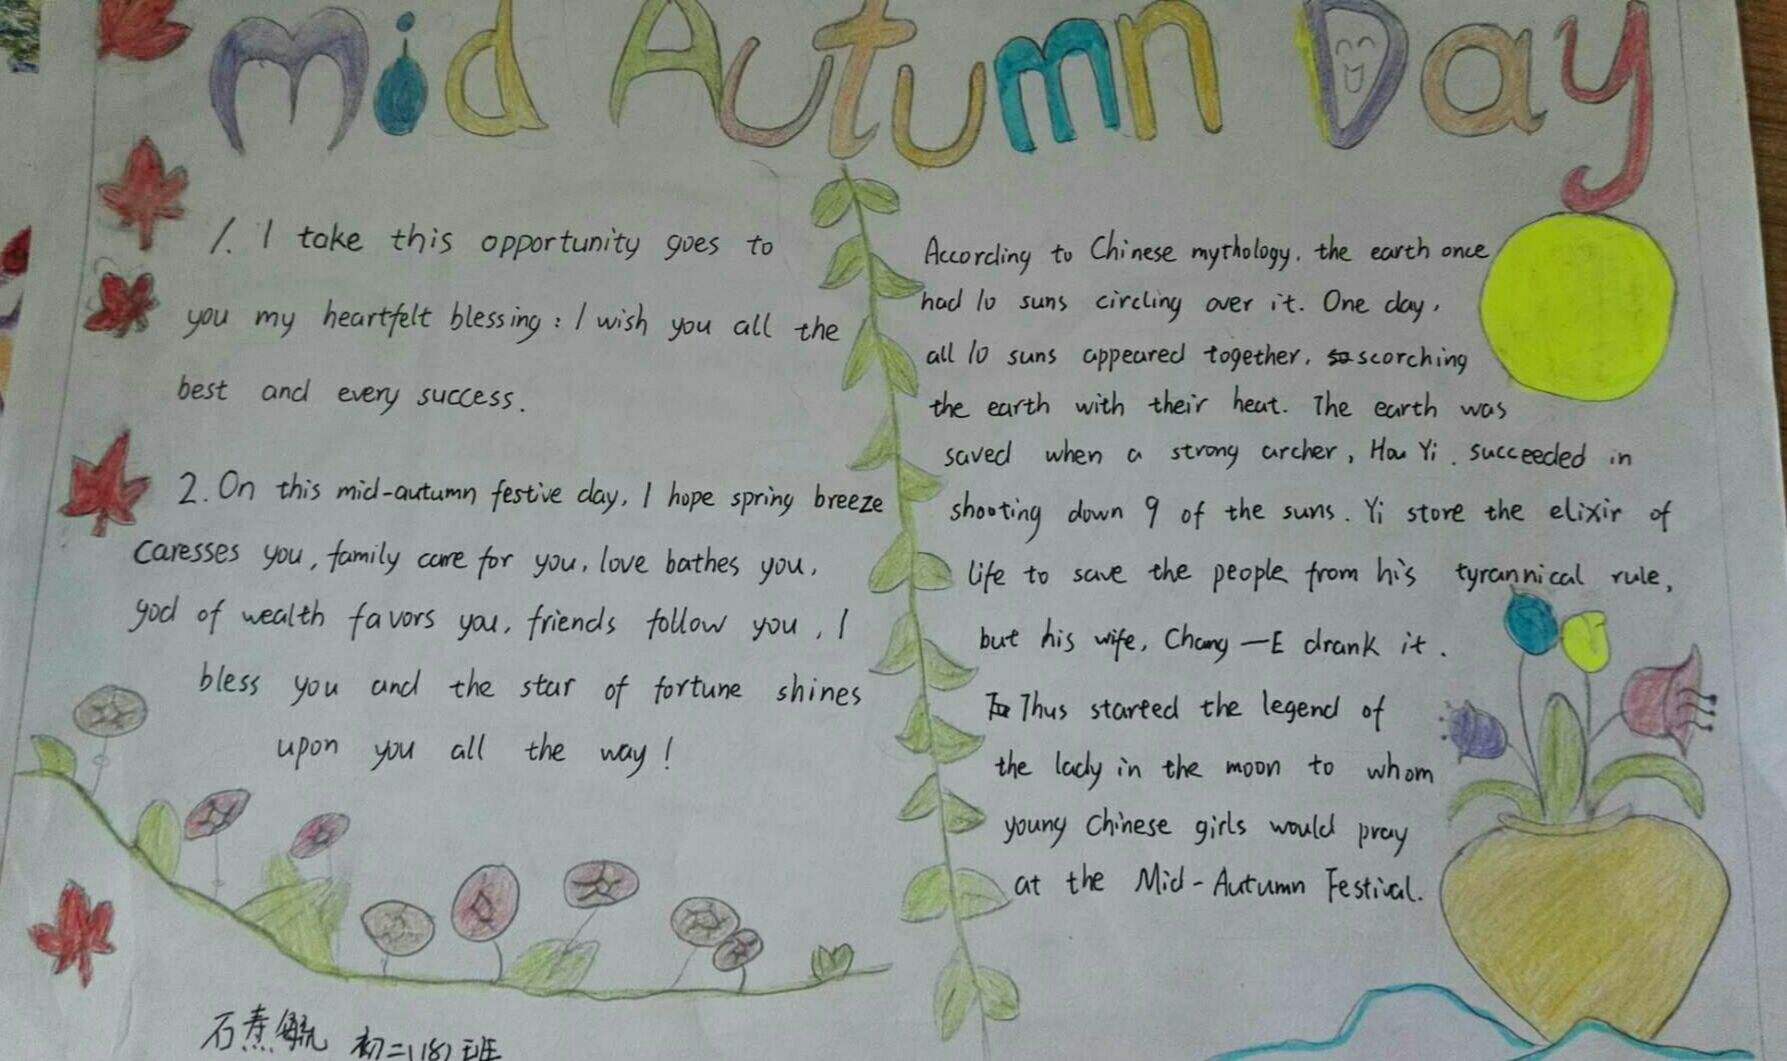 Mid Autumn Day
1. I take this opportunity goes to
you my heartfelt blessing : I wish you all the
best and every success.
2. On this mid-autumn festive day, I hope spring breeze
caresses you, family care for you, love bathes you,
god of wealth favors you, friends follow you, I
bless you and the star of fortune shines
upon you all the way!
According to Chinese mythology, the earth once
had 10 suns circling over it. One day,
all 10 suns appeared together, scorching
the earth with their heat. The earth was
saved when a strong archer, Hou Yi, succeeded in
shooting down 9 of the suns. Yi store the elixir of
life to save the people from his tyrannical rule,
but his wife, Chang-E drank it.
Thus started the legend of
the lady in the moon to whom
young Chinese girls would pray
at the Mid-Autumn Festival.
石熹毓 初二(18)班